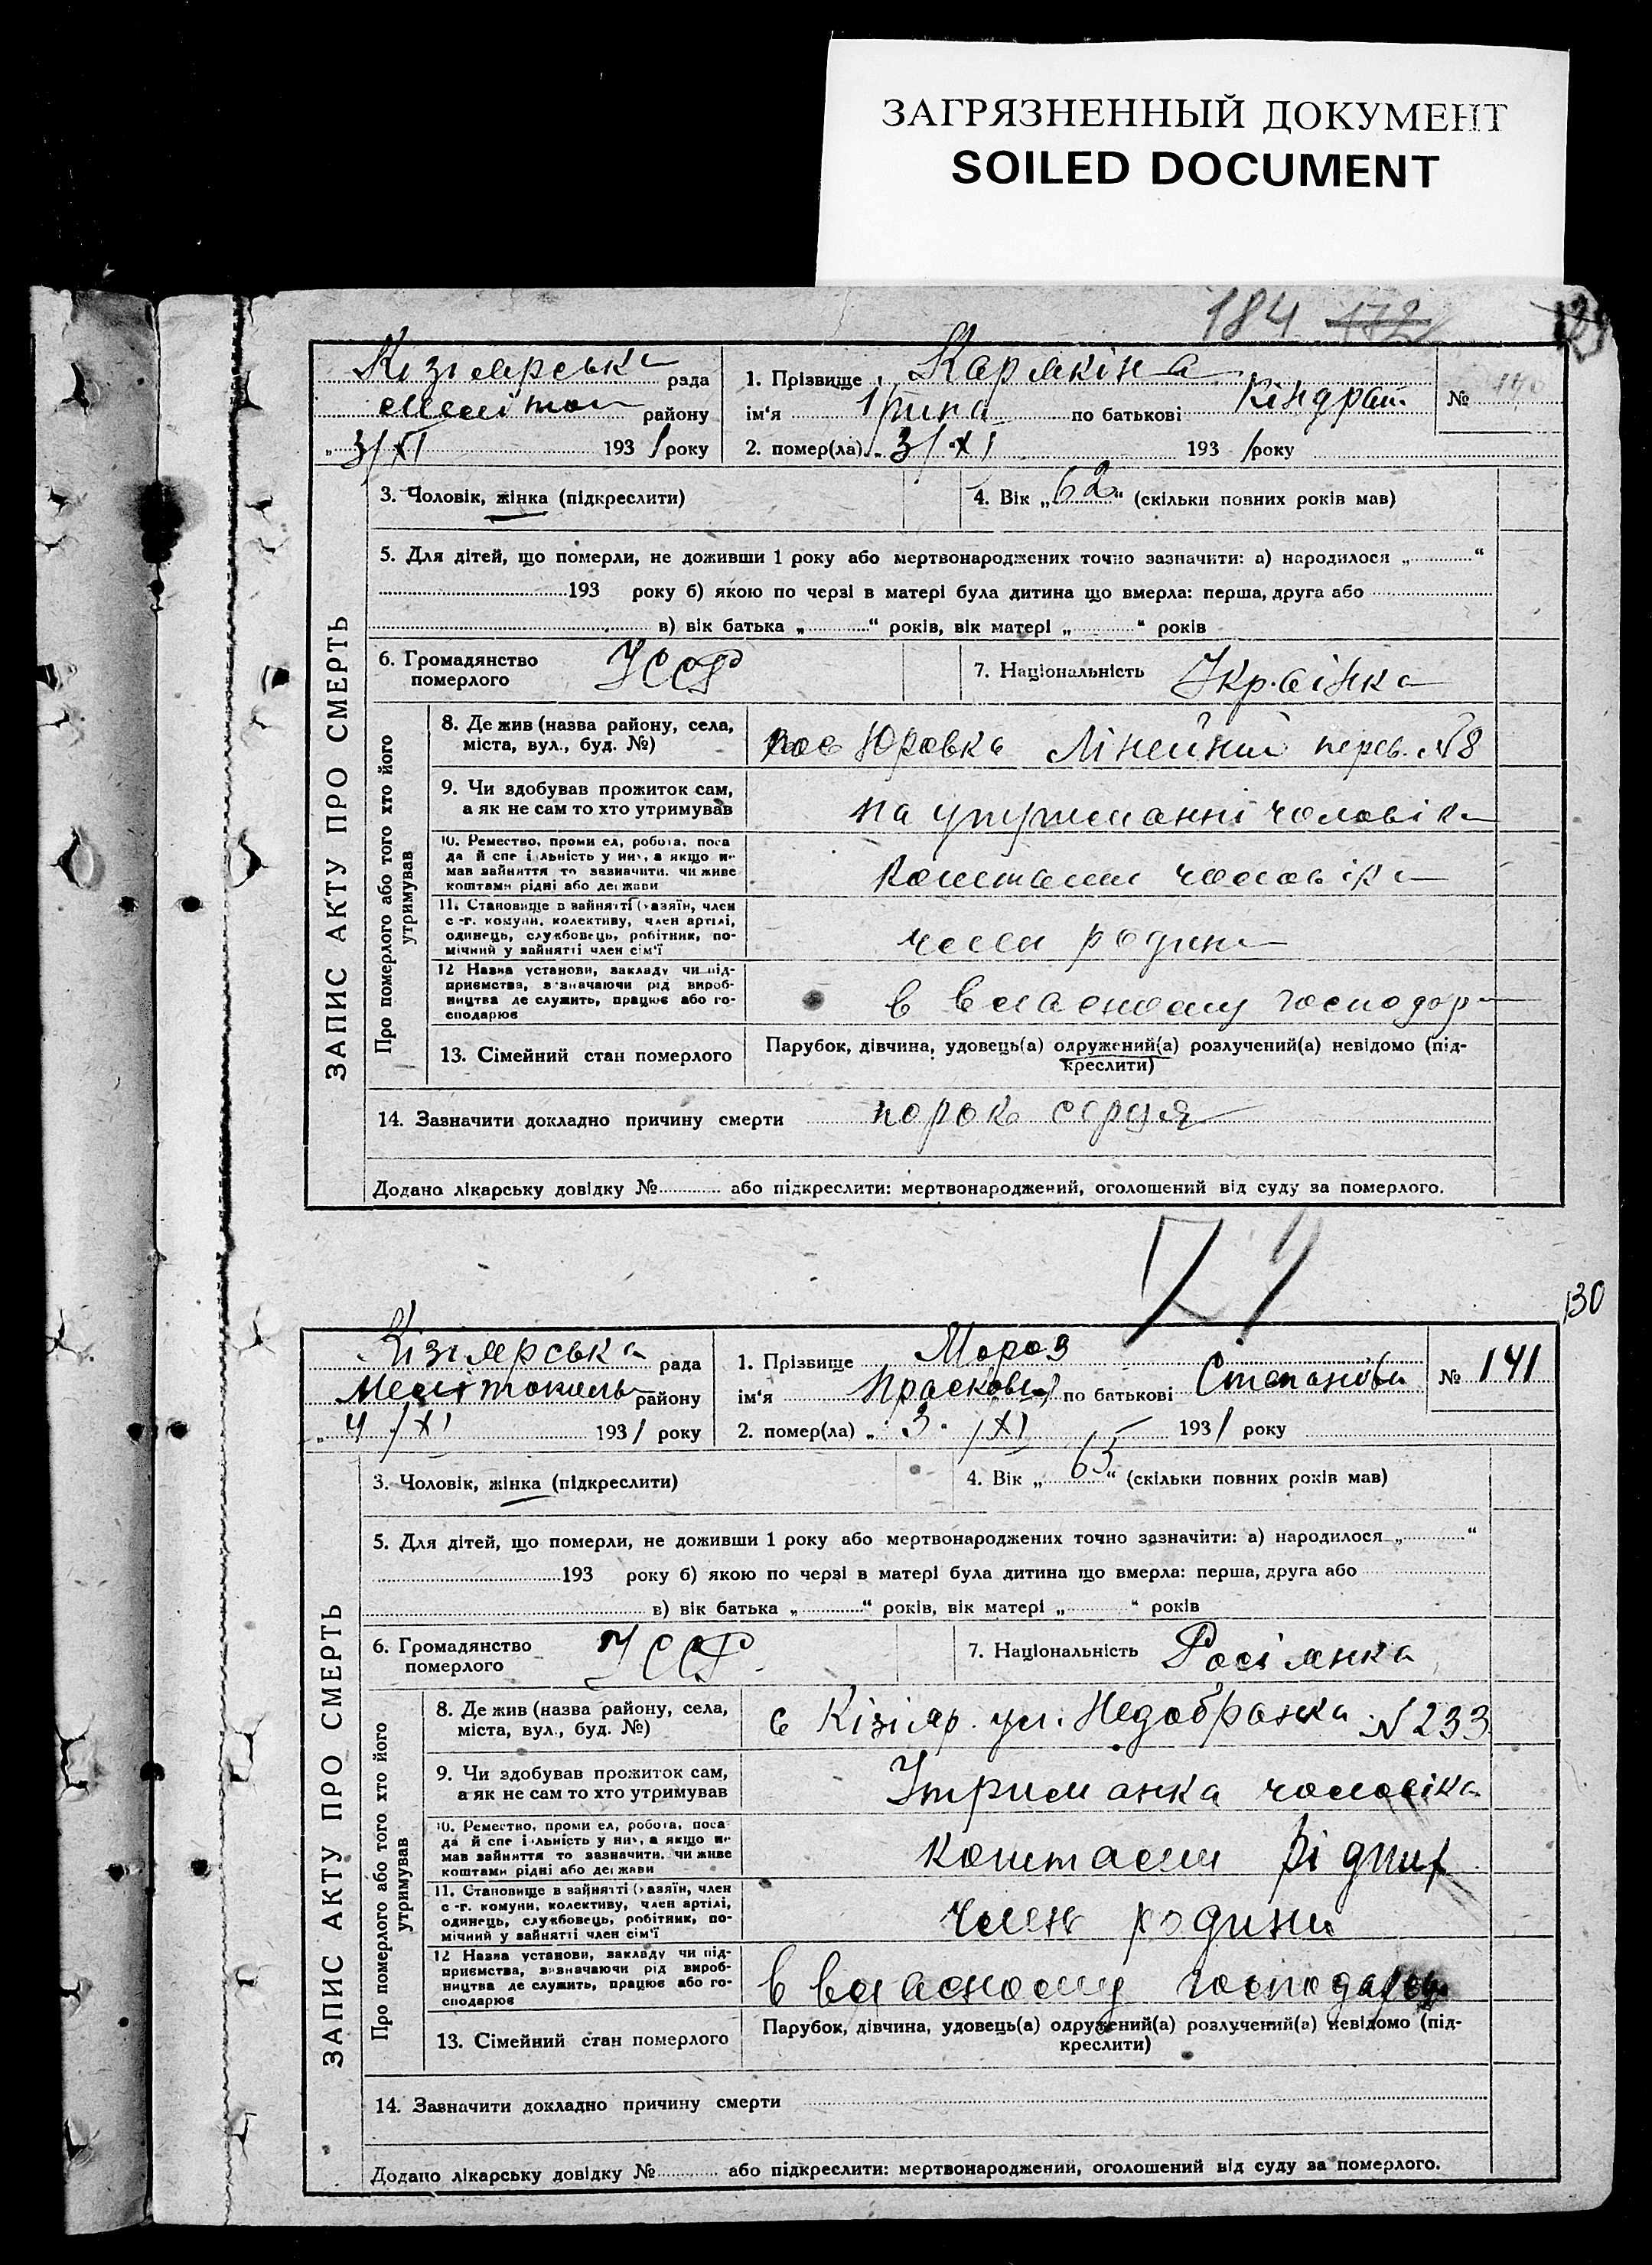 ЗАГРЯЗНЕННЫЙ ДОКУМЕНТ
SOILED DOCUMENT
184 172
Кізіярська рада
Меліто району
„ 3/XI 1931 року
1. Прізвище Карякіна
ім‘я Ірина по батькові Кіндрат
2. помер(ла) „ 3/XI 1931 року
№ 140
ЗАПИС АКТУ ПРО СМЕРТЬ
3. Чоловік, жінка (підкреслити)
4. Вік „62“ (скільки повних років мав)
5. Для дітей, що померли, не доживши 1 року або мертвонароджених точно зазначити: а) народилося „ “
193 року б) якою по черзі в матері була дитина що вмерла: перша, друга або
в) вік батька „ “ років, вік матері „ “ років
6. Громадянство померлого УССР
7. Національність Українка
Про померлого або того хто його утримував
8. Де жив (назва району, села, міста, вул., буд. №) пос Юровка Лінейний перев. №8
9. Чи здобував прожиток сам, а як не сам то хто утримував на утриманні чоловіка
10. Ремество, промисел, робота, посада й спеціальність у них, а якщо не мав зайняття то зазначити, чи живе коштами рідні або держави коштами чоловіка
11. Становище в зайнятті (хазяїн, член с.-г. комуни, колективу, член артілі, одинець, службовець, робітник, помічний у зайнятті член сім‘ї член родини
12 Назва установи, закладу чи підприємства, визначаючи рід виробництва де служить, працює або господарює в власному господар
13. Сімейний стан померлого Парубок, дівчина, удовець(а) одружений(а) розлучений(а) невідомо (підкреслити)
14. Зазначити докладно причину смерти порок серця
Додано лікарську довідку № або підкреслити: мертвонароджений, оголошений від суду за померлого.
130
Кізіярська рада
Мелітопільс району
„ 4/XI 1931 року
1. Прізвище Мороз
ім‘я Прасковья по батькові Степанівн
2. помер(ла) „ 3 “ /XI 1931 року
№ 141
ЗАПИС АКТУ ПРО СМЕРТЬ
3. Чоловік, жінка (підкреслити)
4. Вік „65“ (скільки повних років мав)
5. Для дітей, що померли, не доживши 1 року або мертвонароджених точно зазначити: а) народилося „ “
193 року б) якою по черзі в матері була дитина що вмерла: перша, друга або
в) вік батька „ “ років, вік матері „ “ років
6. Громадянство померлого УССР
7. Національність Росіянка
Про померлого або того хто його утримував
8. Де жив (назва району, села, міста, вул., буд. №) с Кізіяр. ул. №233
9. Чи здобував прожиток сам, а як не сам то хто утримував Утриманка чоловіка
10. Ремество, промисел, робота, посада й спеціальність у них, а якщо не мав зайняття то зазначити, чи живе коштами рідні або держави коштами рідних
11. Становище в зайнятті (хазяїн, член с.-г. комуни, колективу, член артілі, одинець, службовець, робітник, помічний у зайнятті член сім‘ї член родини
12 Назва установи, закладу чи підприємства, визначаючи рід виробництва де служить, працює або господарює в власному господарст
13. Сімейний стан померлого Парубок, дівчина, удовець(а) одружений(а) розлучений(а) невідомо (підкреслити)
14. Зазначити докладно причину смерти
Додано лікарську довідку № або підкреслити: мертвонароджений, оголошений від суду за померлого.